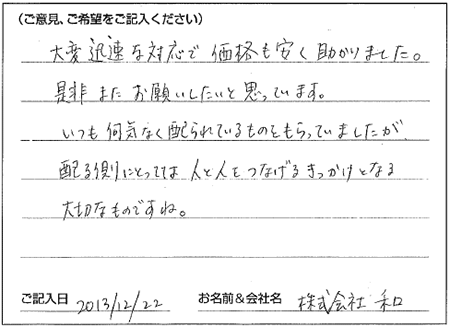 (ご意見、ご希望をご記入ください)
大変迅速な対応で価格も安く助かりました。
是非またお願いしたいと思っています。
いつも何気なく配られているものをもらっていましたが
配る側にとっては人と人をつなげるきっかけとなる
大切なものですね。
ご記入日 2013/12/22 お名前&会社名 株式会社 和